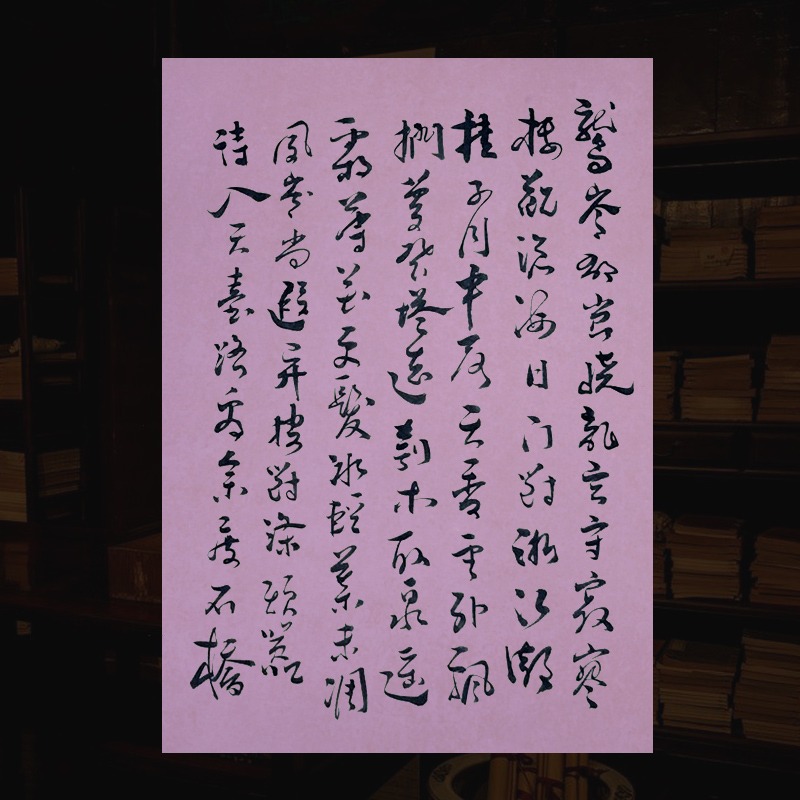 鷲嶺郁岧嶢龍宮守寂寥
樓觀滄海日門對浙江潮
桂子月中落天香雲外飄
捫蘿登塔遠刳木取泉遥
霜薄花更發冰輕葉未凋
夙齡尚遐异搜對滌煩囂
待入天臺路看余度石橋